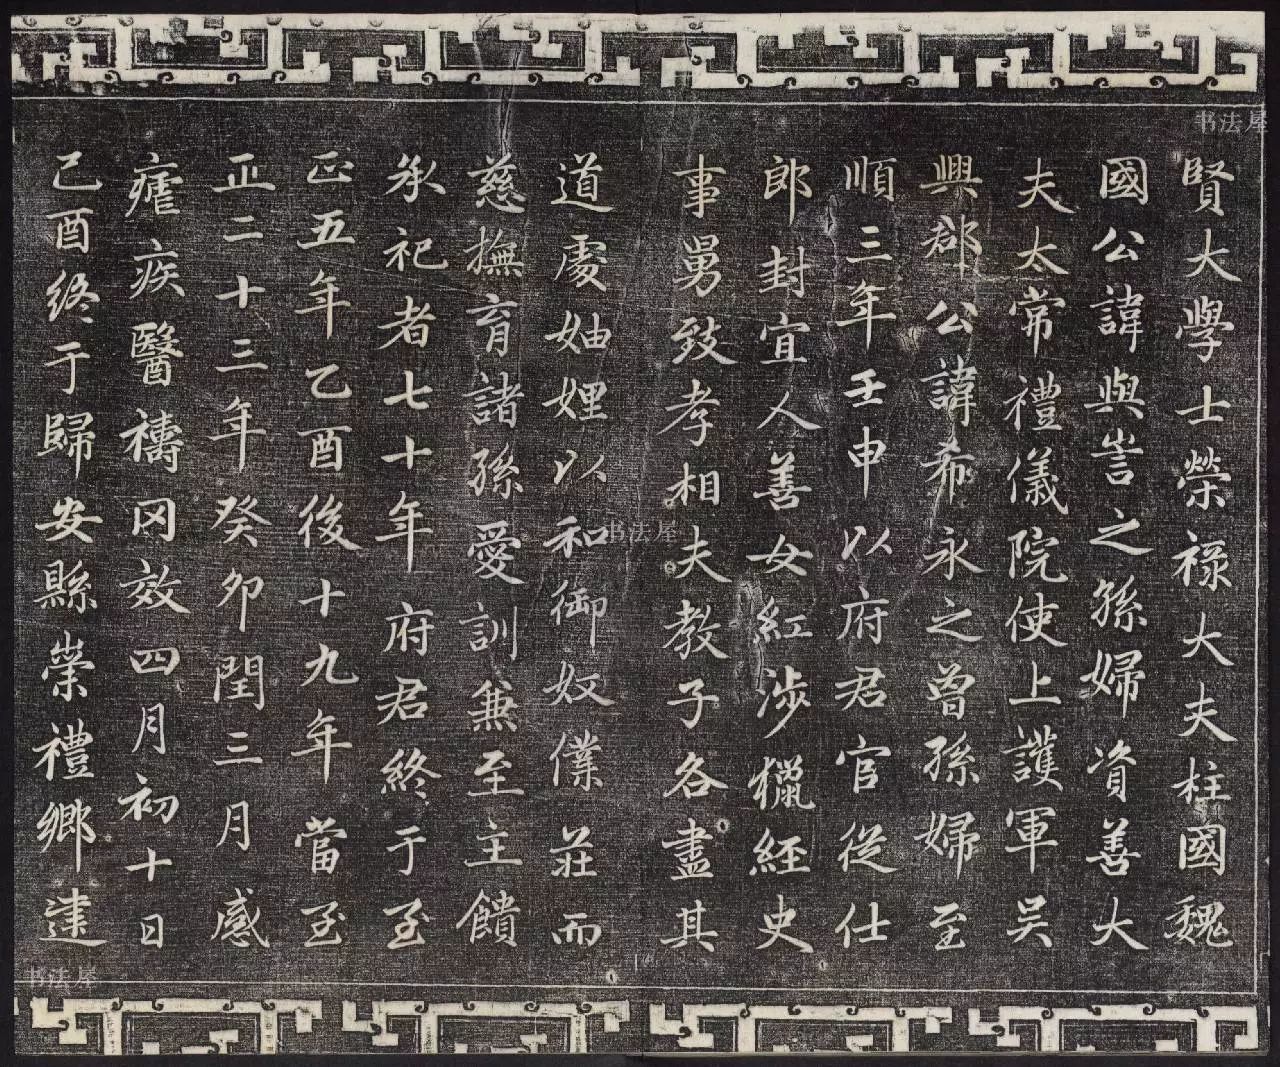 賢大學士榮祿大夫柱國魏
國公諱與訔之孫婦資善大
夫太常禮儀院使上護軍吴
興郡公諱希永之曾孫婦至
順三年壬申以府君官從仕
郎封宜人善女紅涉獵經史
事舅致孝相夫教子各盡其
道處妯娌以和御奴僕莊而
慈撫育諸孫愛訓兼至主饋
承祀者七十年府君終于至
正五年乙酉後十九年當至
正二十三年癸卯閏三月感
瘧疾醫禱罔效四月初十日
己酉終于歸安縣崇禮鄉建
书法屋
书法屋
书法屋